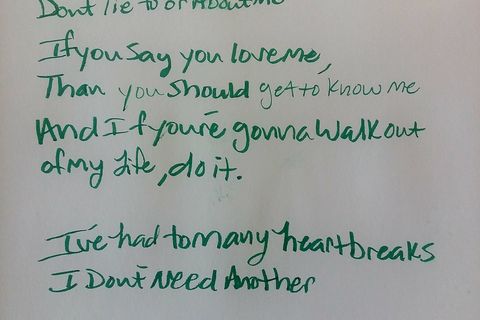 Don't lie to or About me
If you say you love me,
Than you should get to know me
And If you're gonna walk out
of my life, do it.
I've had to many heartbreaks
I Don't Need Another